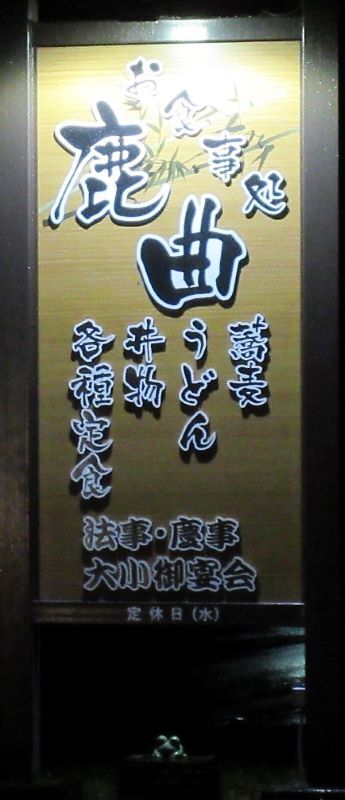 お食事処
鹿曲
蕎麦
うどん
丼物
各種定食
法事・慶事
大小御宴会
定休日(水)